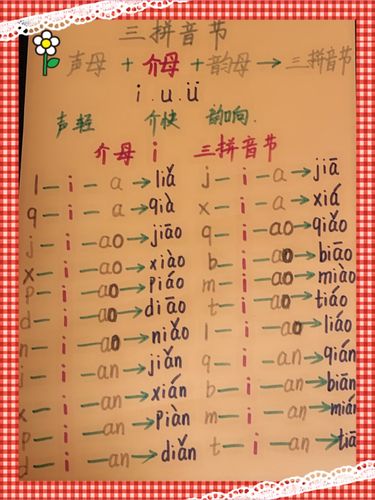 三拼音节
声母 + 介母 + 韵母 → 三拼音节
i . u . ü
声轻 介快 韵响.
介母 i 三拼音节
l — i — a → liǎ j — i — a → jiā
q — i — a → qià x — i — a → xiá
j — i — ao → jiāo q — i — ao → qiǎo
x — i — ao → xiào b — i — ao → biāo
p — i — ao → piáo m — i — ao → miào
d — i — ao → diāo t — i — ao → tiáo
n — i — ao → niǎo l — i — ao → liáo
j — i — an → jiǎn q — i — an → qián
x — i — an → xián b — i — an → biān
p — i — an → piàn m — i — an → mián
d — i — an → diǎn t — i — an → tiā